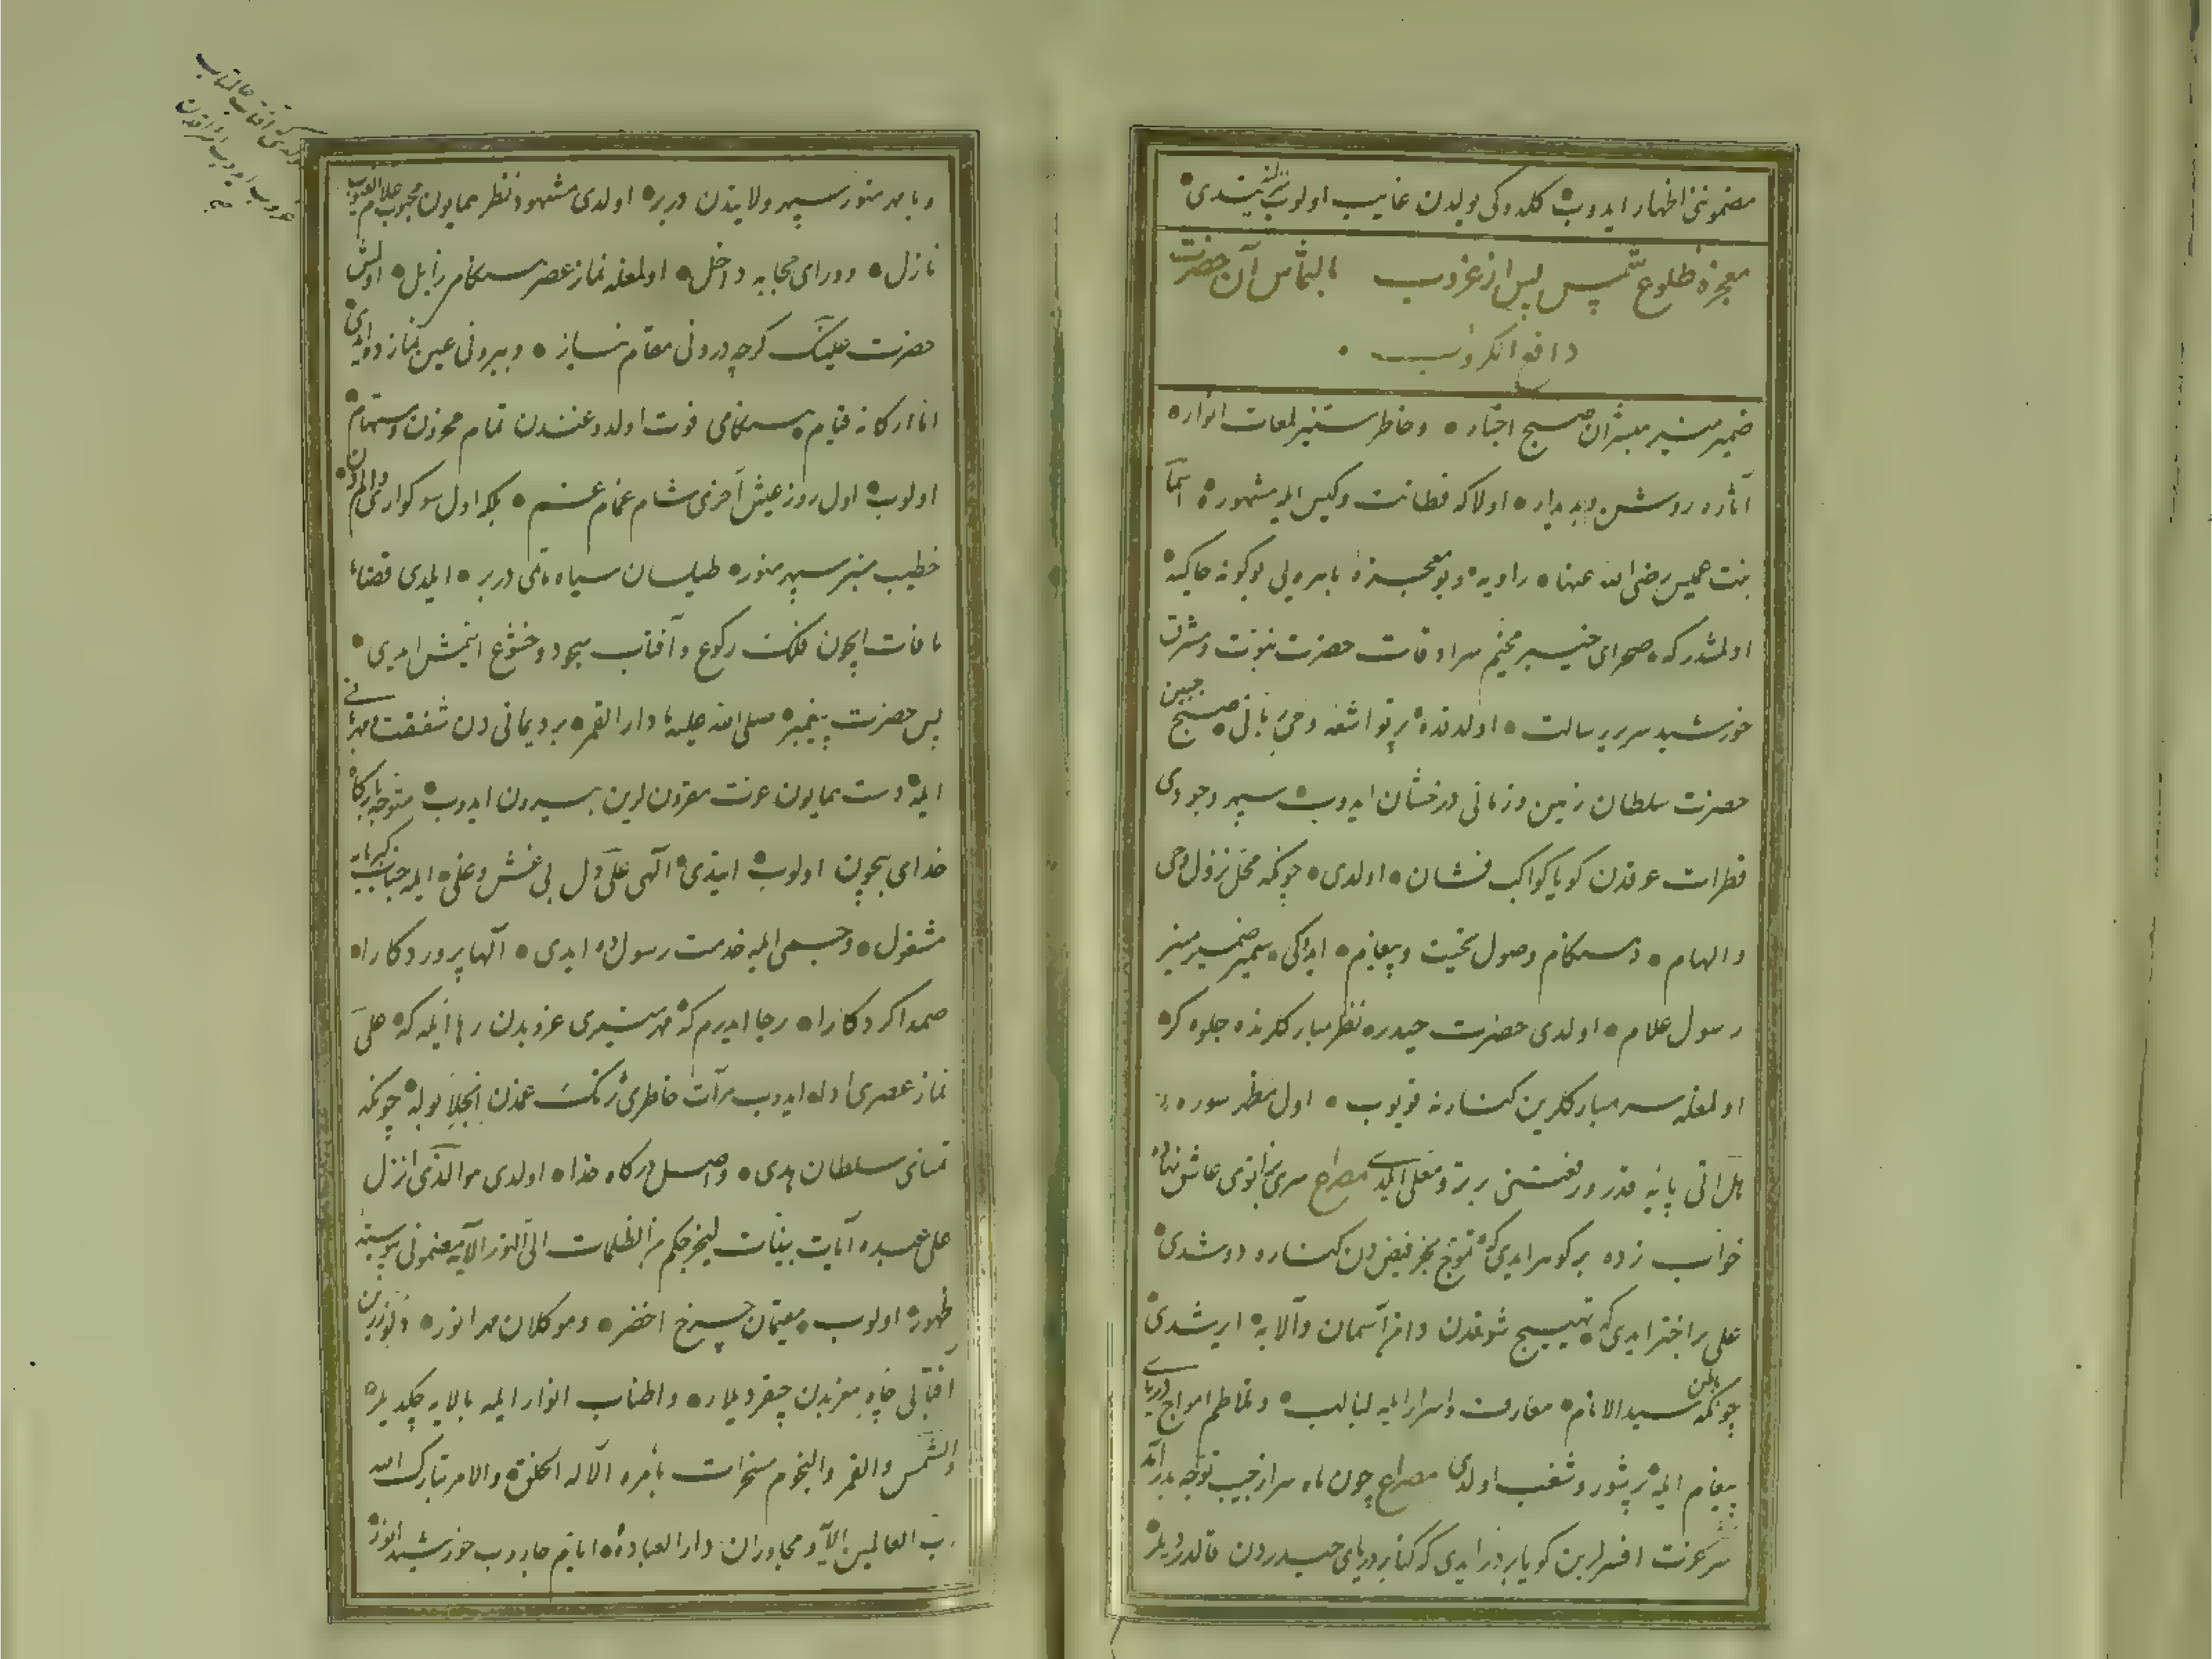 مضموننی اظهار ایدوب کلدوکی یولدن غایب اولوب کیتدی
معجزهٔ طلوع شمس پس از غروب بالتماس آن حضرت
دافع الکروب
ضمیر منیر مبشران صبح اخباره و خاطر مستنیر لمعات انواره
آثاره روشن و پدیدار اولا که فطانت و کیس ایله مشهوره اسما
بنت عمیس رضی الله عنها راویه و بو معجزهٔ باهره‌یی بو کونه حاکیه
اولمشدر که صحرای خیبر مخیم سرادقات حضرت نبوت و مشرق
خورشید سریر رسالت اولدقده پرتو اشعه وحی ربانی صبح جبین
حضرت سلطان زمین و زمانی درخشان ایدوب سپهر وجودی
قطرات عرقدن کویا کواکب فشان اولدی چونکه محل نزول وحی
والهام و هنکام وصول تحیت و پیغام ایدی که سمیر ضمیر منیر
رسول علام اولدی حضرت حیدره نظر مبارکلرنده جلوه کر
اولمغله سر مبارکلرین کنارنه قویوب اول مظهر سوره
هل اتی پایه قدر و رفعتنی برتر و معلی ایلدی مصراع سری بزانوی عاشق نهاد
خواب زده بر کوهر ایدی که تموج بحر فیض دن کناره دوشدی
علی بر اختر ایدی که تهییج شوقدن دامن آسمان والایه ایرشدی
چونکه باطن سیدالانام معارف و اسرار ایله لبالب و تلاطم امواج دریای
پیغام ایله پرشور و شغب اولدی مصراع چون ماه سر از جیب توجه بدر آمد
سر عزت افسرلرین کویا بر در ایدی که کنار دریای حیدردن قالدردیلر
وبا مهر منور سپهر ولایتدن دربر اولدی مشهود نظر همایون محبوب علام الغیوب
نازل و ورای حجابه داخل اولمغله نماز عصر هنکامی زایل اولمش
حضرت علینک کرچه درونی مقام نیاز و بیرونی عین نماز ده ایدی
اما ارکانه قیام هنکامی فوت اولدوغندن تمام محزون و مستهام
اولوب اول روز عیش آخری شام غمام غم بلکه اول سوکواری دن
خطیب منبر سپهر منور طیلسان سیاه ماتمی دربر ایلدی قضاء
ما فات ایچون فلک رکوع و آفتاب سجود و خشوع ایتمش ایدی
پس حضرت پیغمبر صلی الله علیه ما دار القمر برد یمانی دن شفقت و مهربانی
ایله دست همایون عزت مقرون لرین بیرون ایدوب متوجه بارکاه
خدای بیچون اولوب ایتدی الهی علی دل بی غش و غلی ایله جناب کبریایه
مشغول و جسمی ایله خدمت رسول ده ایدی الها پروردکارا
صمدا کردکارا رجا ایدرم که مهر منیری غروبدن رها ایله که علی
نماز عصری ادا ایدوب مرآت خاطری ژنک غمدن انجلا بوله چونکه
تمنای سلطان هدی واصل درکاه خدا اولدی هوالذی انزل
علی عبده آیات بینات لیخرجکم من الظلمات الی النور الآیه مضمونی پیوسته
ظهور اولوب مقیمان چرخ اخضر و موکلان مهر انور دلو زرین
آفتابی چاه مغربدن چقردیلر و اطناب انوار ایله بالایه چکدیلر
والشمس والقمر والنجوم مسخرات بامره الا له الخلق والامر تبارک الله
رب العالمین الآیه و مجاوران دار العباده ایام جاروب خورشید انور